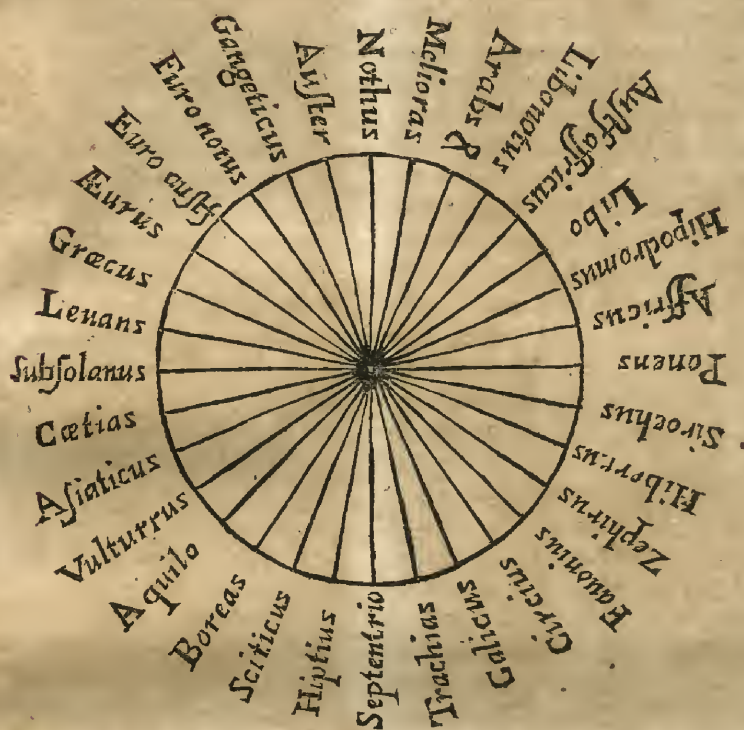 Nothus
Melioras
Arabs &
Libonotus
Auſtſaffricus
Libo
Hipodromus
Affricus
Ponens
Sirochus
Hiberrus
Zephirus
Fauonius
Circius
Galicus
Trachias
Septentrio
Hiptius
Sciticus
Boreas
Aquilo
Vulturrus
Aſiaticus
Cætias
Subſolanus
Leuans
Græcus
Æurus
Euro auſtſ
Euronotus
Gangeticus
Auſter